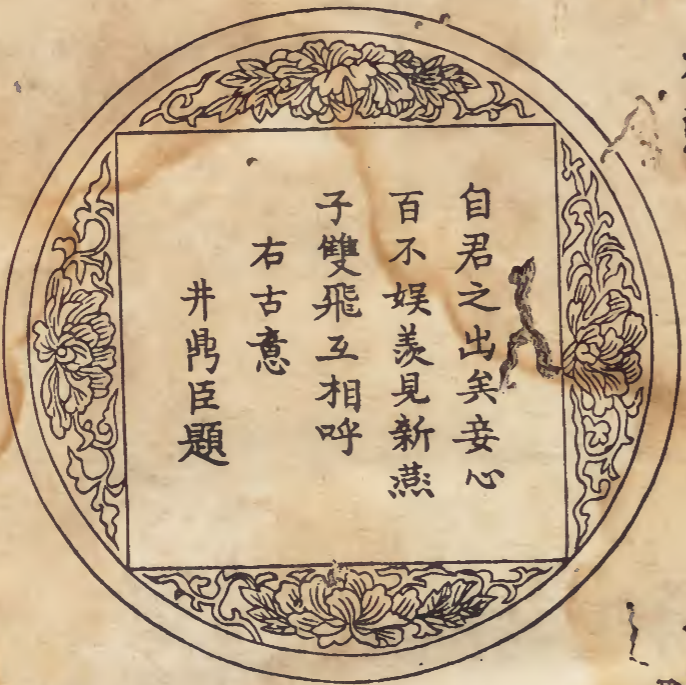 自君之出矣妾心
百不娯羡見新燕
子雙飛互相呼
右古意
井鳲臣題